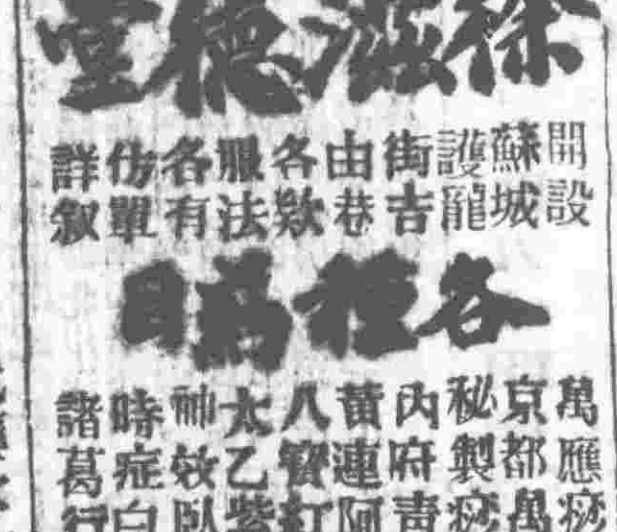 徐滋德堂
開設
蘇城
護龍
街吉
由巷
各欵
服法
各有
仿單
詳叙
各種目
萬應痧
京都萬
秘製痧
內府青
黃連阿
八寶紅
太乙紫
神效臥
時症白
諸葛行